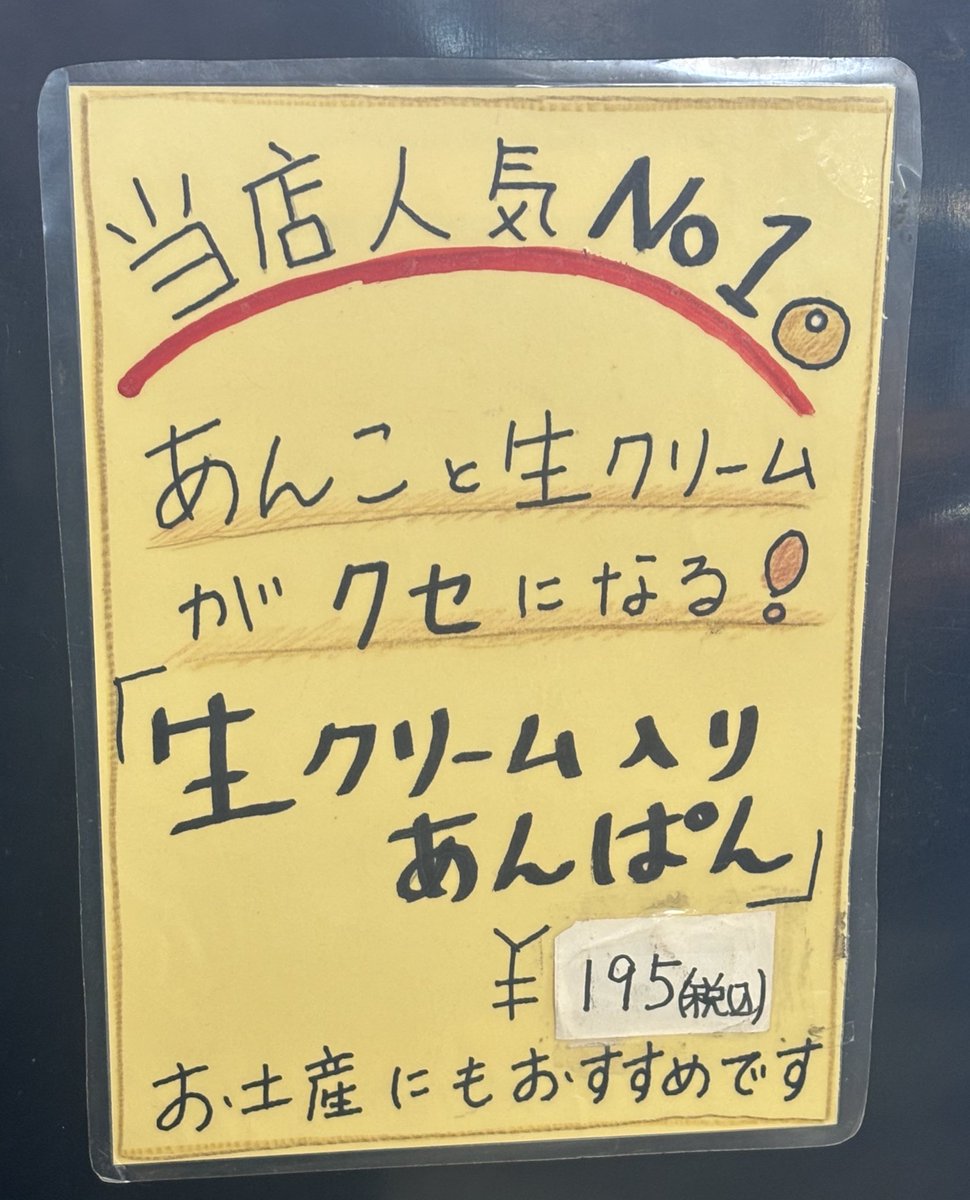 当店人気No1
あんこと生クリーム
がクセになる!
「生クリーム入り
あんぱん」
¥195(税込)
お土産にもおすすめです